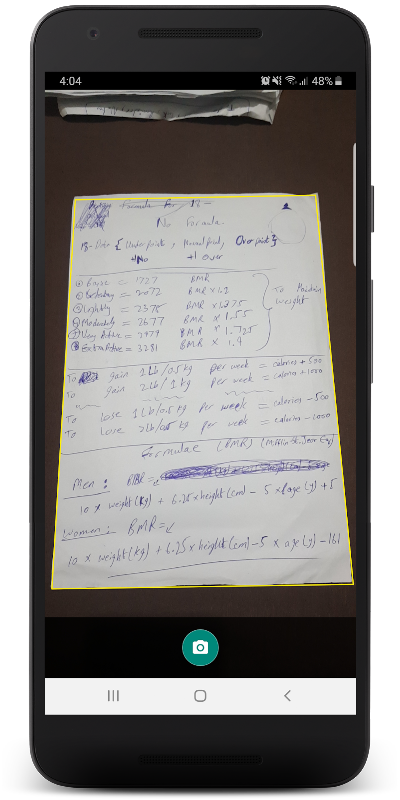 4:04 48%
Formula
No Formula.
{ Underpoints, Normal point, Over point }
+No +1 over
Basic = 1727 BMR
Sedentary = 2072 BMR x 1.2
Lightly = 2375 BMR x 1.375
Moderately = 2677 BMR x 1.55
Very Active = BMR x 1.725
Extra Active = 3281 BMR x 1.9
To Maintain
weight
To gain 1 Lb/0.5 kg per week = calories + 500
To gain 2 Lb/1 kg per week = calories + 1000
To lose 1 Lb/0.5 kg per week = calories - 500
To lose 2 lb/0.5 kg per week = calories - 1000
Formulae (BMR) (Mifflin St. Jeor Eq)
Men :
10 x weight(kg) + 6.25 x height(cm) - 5 x age(y) + 5
Women : BMR =
10 x weight(kg) + 6.25 x height(cm) - 5 x age(y) - 161